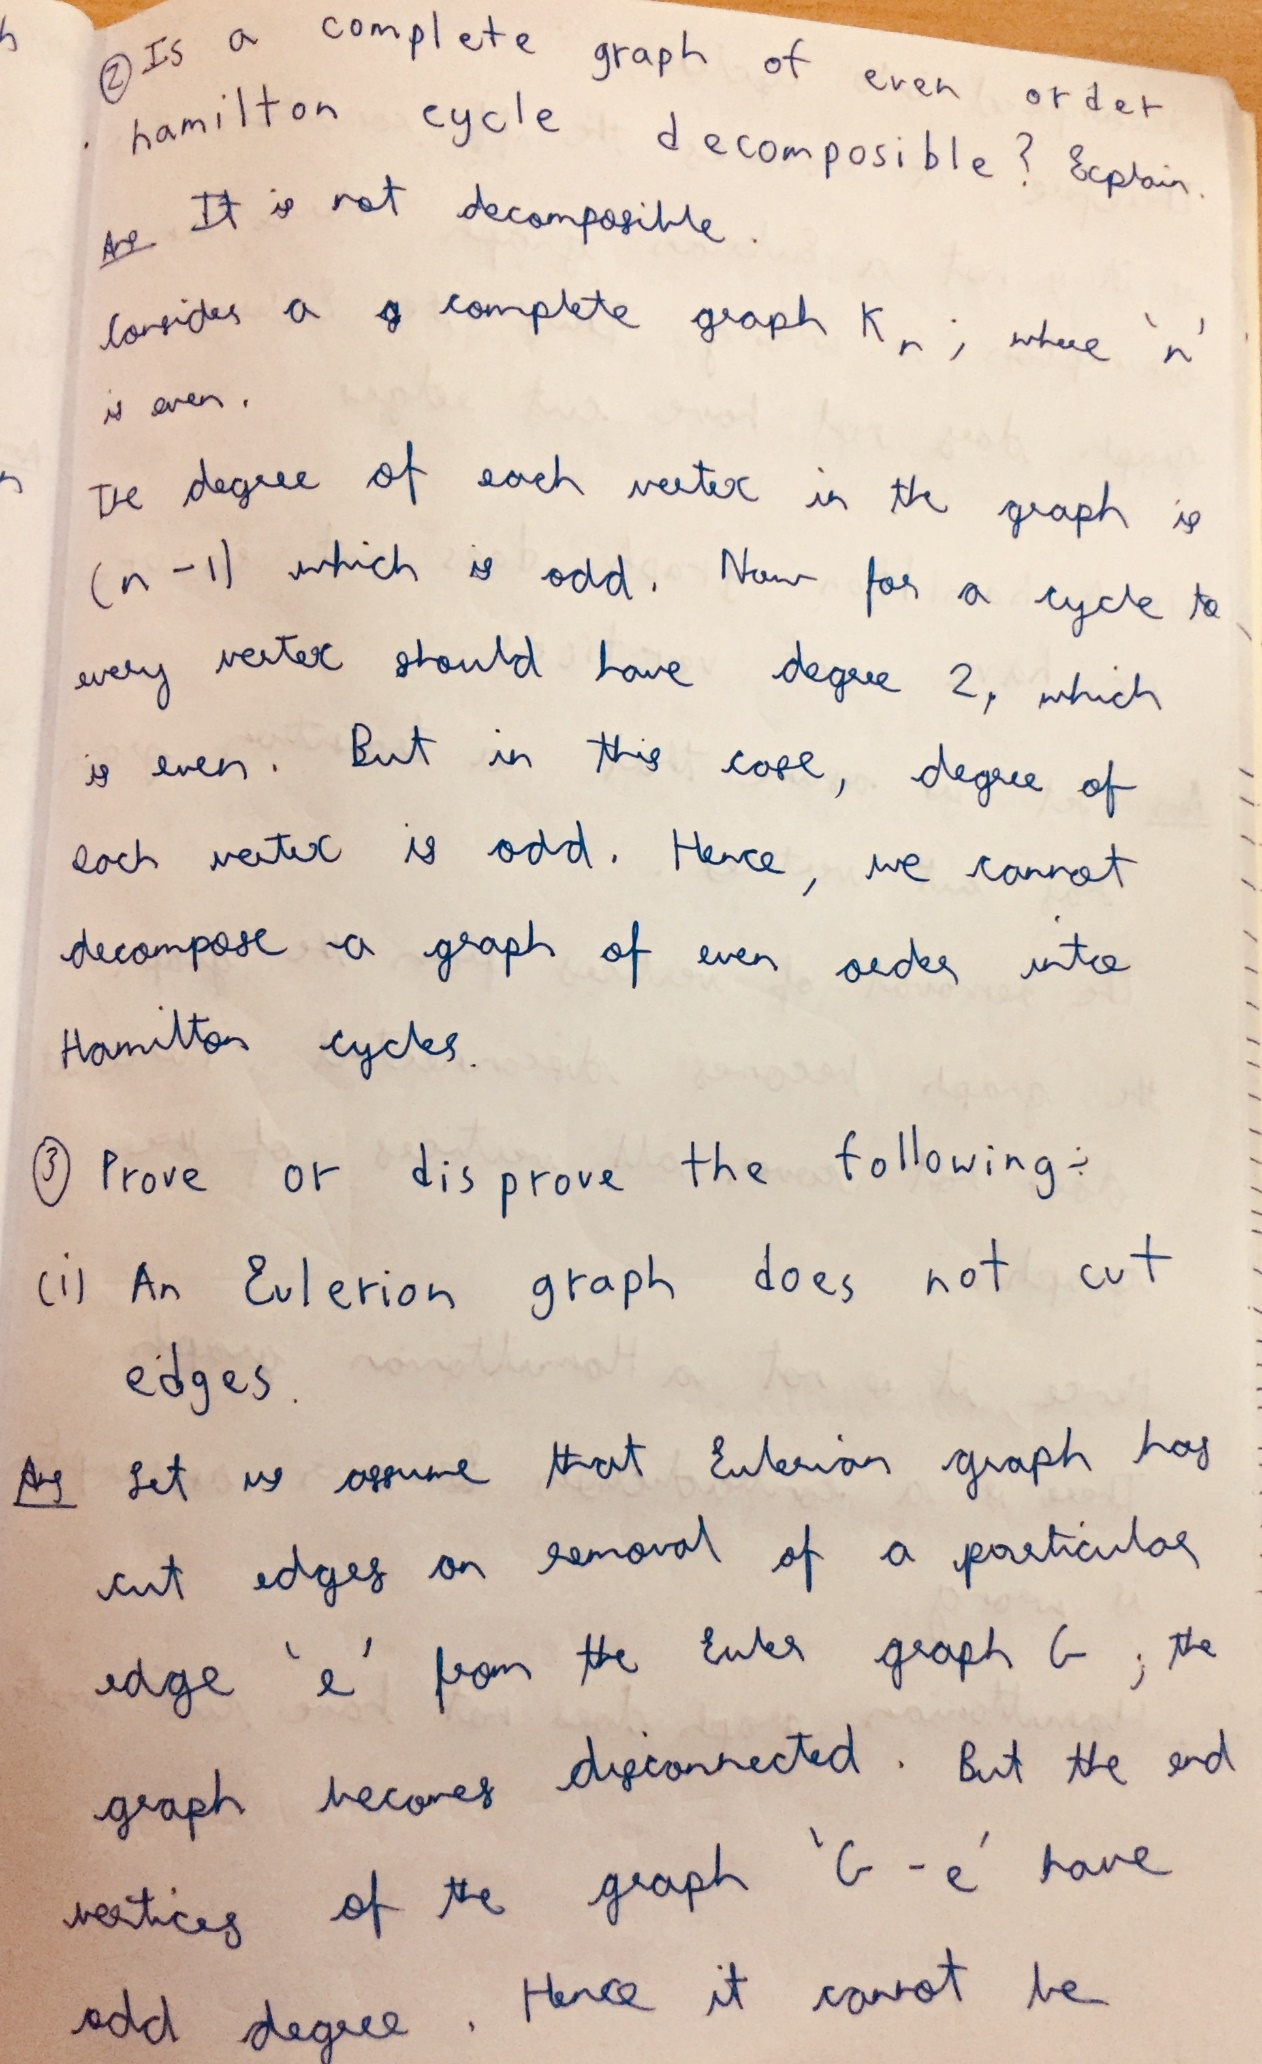 ② Is a complete graph of even order
hamilton cycle decomposible? Explain.
Ans It is not decomposible.
Consider a complete graph Kn; where 'n'
is even.
The degree of each vertex in the graph is
(n-1) which is odd. Now for a cycle to
every vertex should have degree 2, which
is even. But in this case, degree of
each vertex is odd. Hence, we cannot
decompose a graph of even order into
Hamilton cycles.
③ Prove or disprove the following:
(i) An Eulerion graph does not cut
edges.
Ans Let us assume that Eulerian graph has
cut edges on removal of a particular
edge 'e' from the Euler graph G; the
graph becomes disconnected. But the end
vertices of the graph 'G-e' have
odd degree. Hence it cannot be